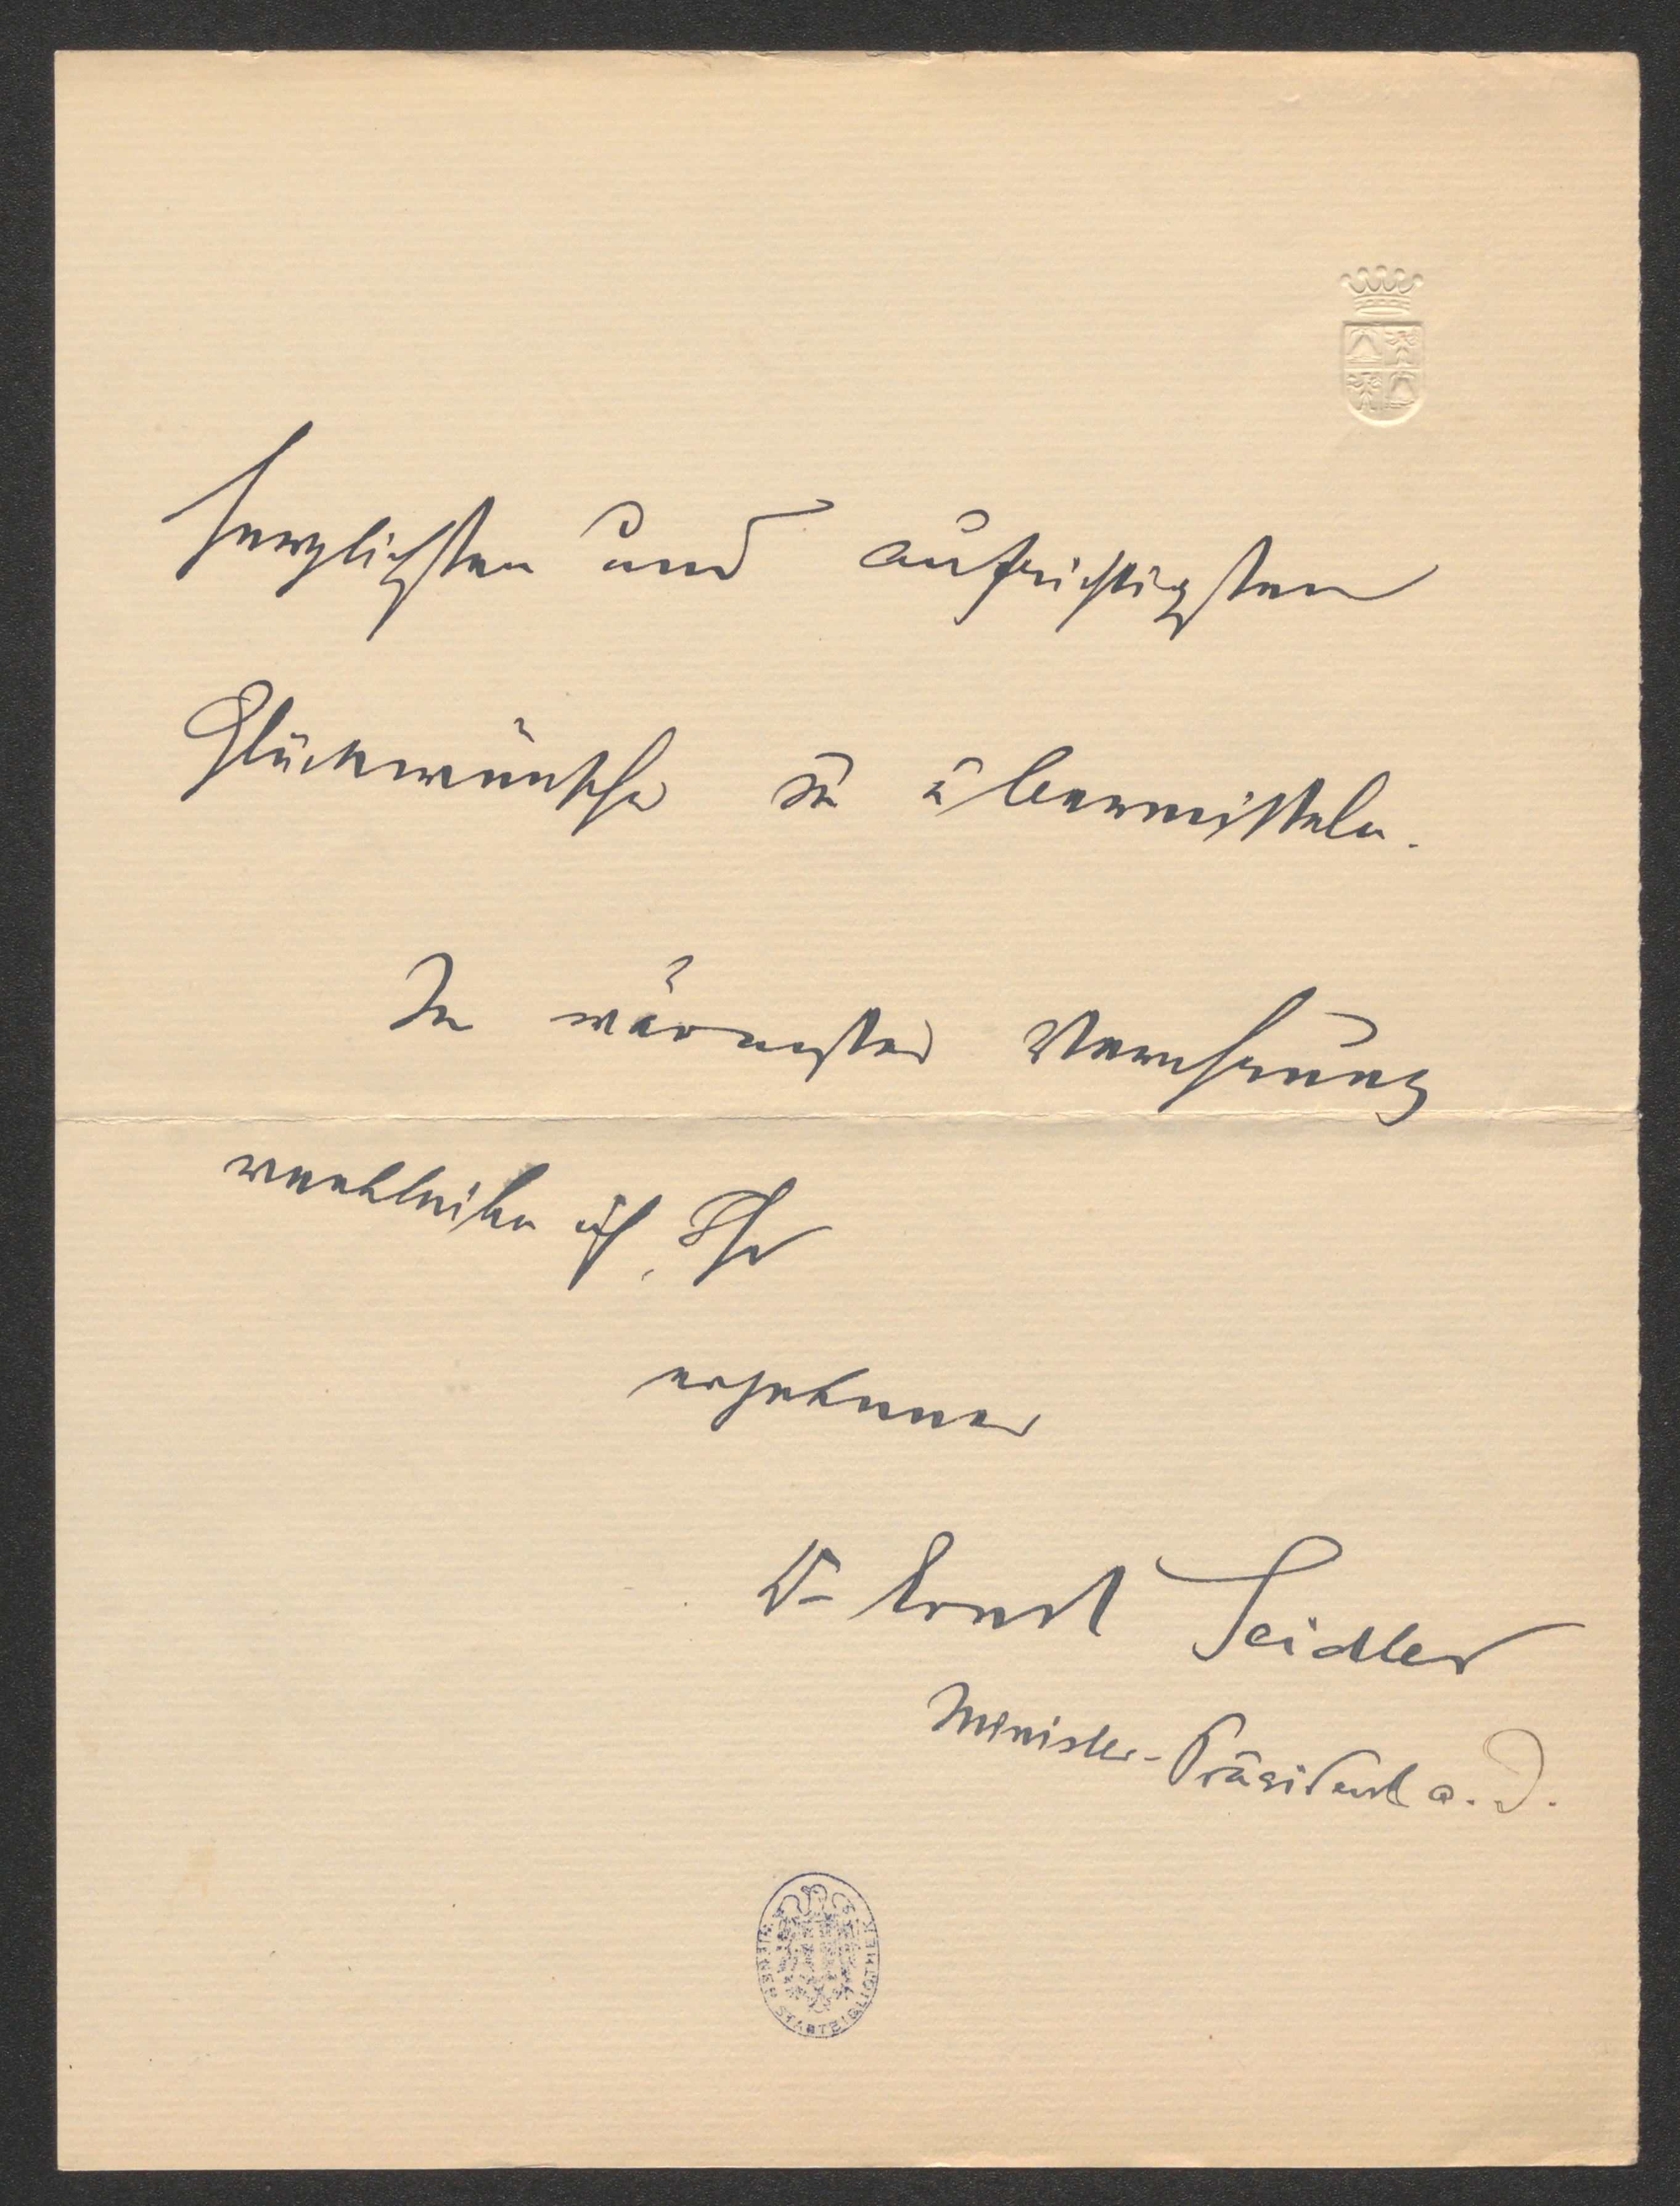 herzlichsten und aufrichtigsten
Glückwünsche zu übermitteln.
In wärmster Verehrung
verbleibe ich, Ihr
ergebener
Dr Ernst Seidler
Minister-Präsident a. D.
WIENER STADTBIBLIOTHEK